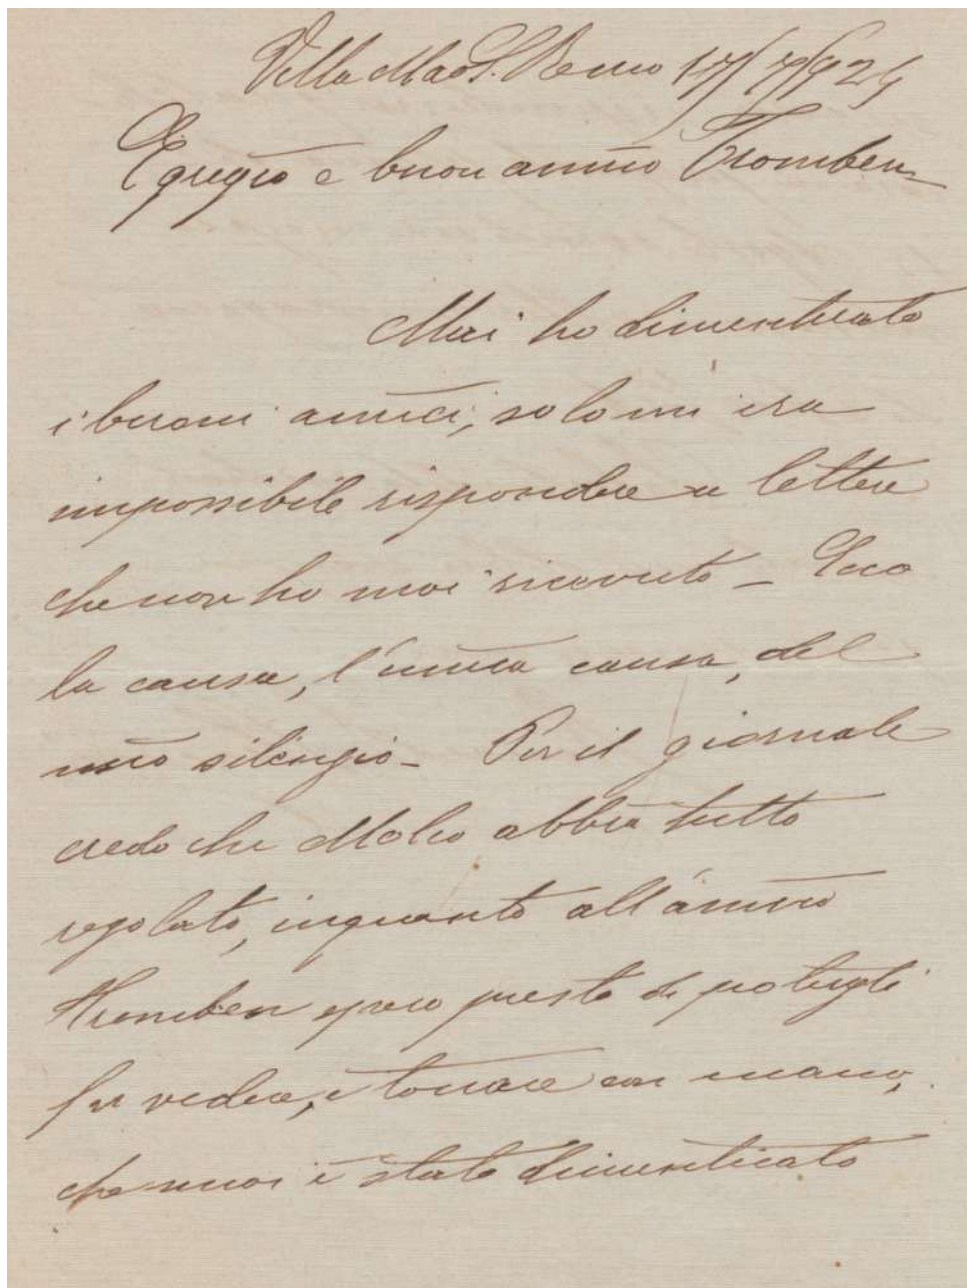 Villa Mao S. Remo 17/7/924
Egregio e buon amico Tromben
Mai ho dimenticato
i buoni amici, solo mi era
impossibile rispondere a lettere
che non ho mai ricevuto – Ecco
la causa, l'unica causa, del
mio silenzio – Per il giornale
credo che abbia tutto
regolato, inquanto all'amico
Tromben spero presto di potergli
far vedere, e toccare con mano,
che mai è stato dimenticato